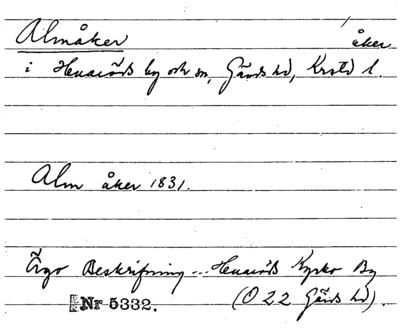 Almåker åker
i Huaröds by och sn, Gärds hd, Krstd l.
Alm åker 1831.
Ägo Beskrifning... Huaröds Kyrko By
Nr 5332. (O 22 Gärds hd).